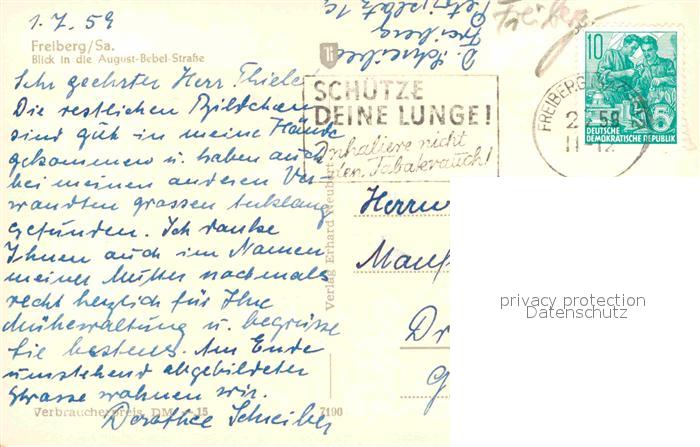 1.7.59
Freiberg/Sa.
Blick in die August-Bebel-Straße
Sehr geehrter Herr Thiele
Die restlichen Bildchen
sind gut in meine Hände
gekommen u. haben auch
bei meinen anderen Ver-
wandten grossen Anklang
gefunden. Ich danke
Ihnen auch im Namen
meiner Mutter nochmals
recht herzlich für Ihre
Mühewaltung u. begrüsse
Sie bestens. Am Ende
umstehend abgebildeter
Strasse wohnen wir.
Dorothee Schreiber
Verbraucherpreis DM -.15
7190
Verlag Erhard Neubert
D. Schreiber
Freiberg
Petriplatz 1c
Freiberg
SCHÜTZE
DEINE LUNGE!
Inhaliere nicht
den Tabakrauch!
FREIBERG
10
DEUTSCHE
DEMOKRATISCHE REPUBLIK
Herrn
privacy protection
Datenschutz